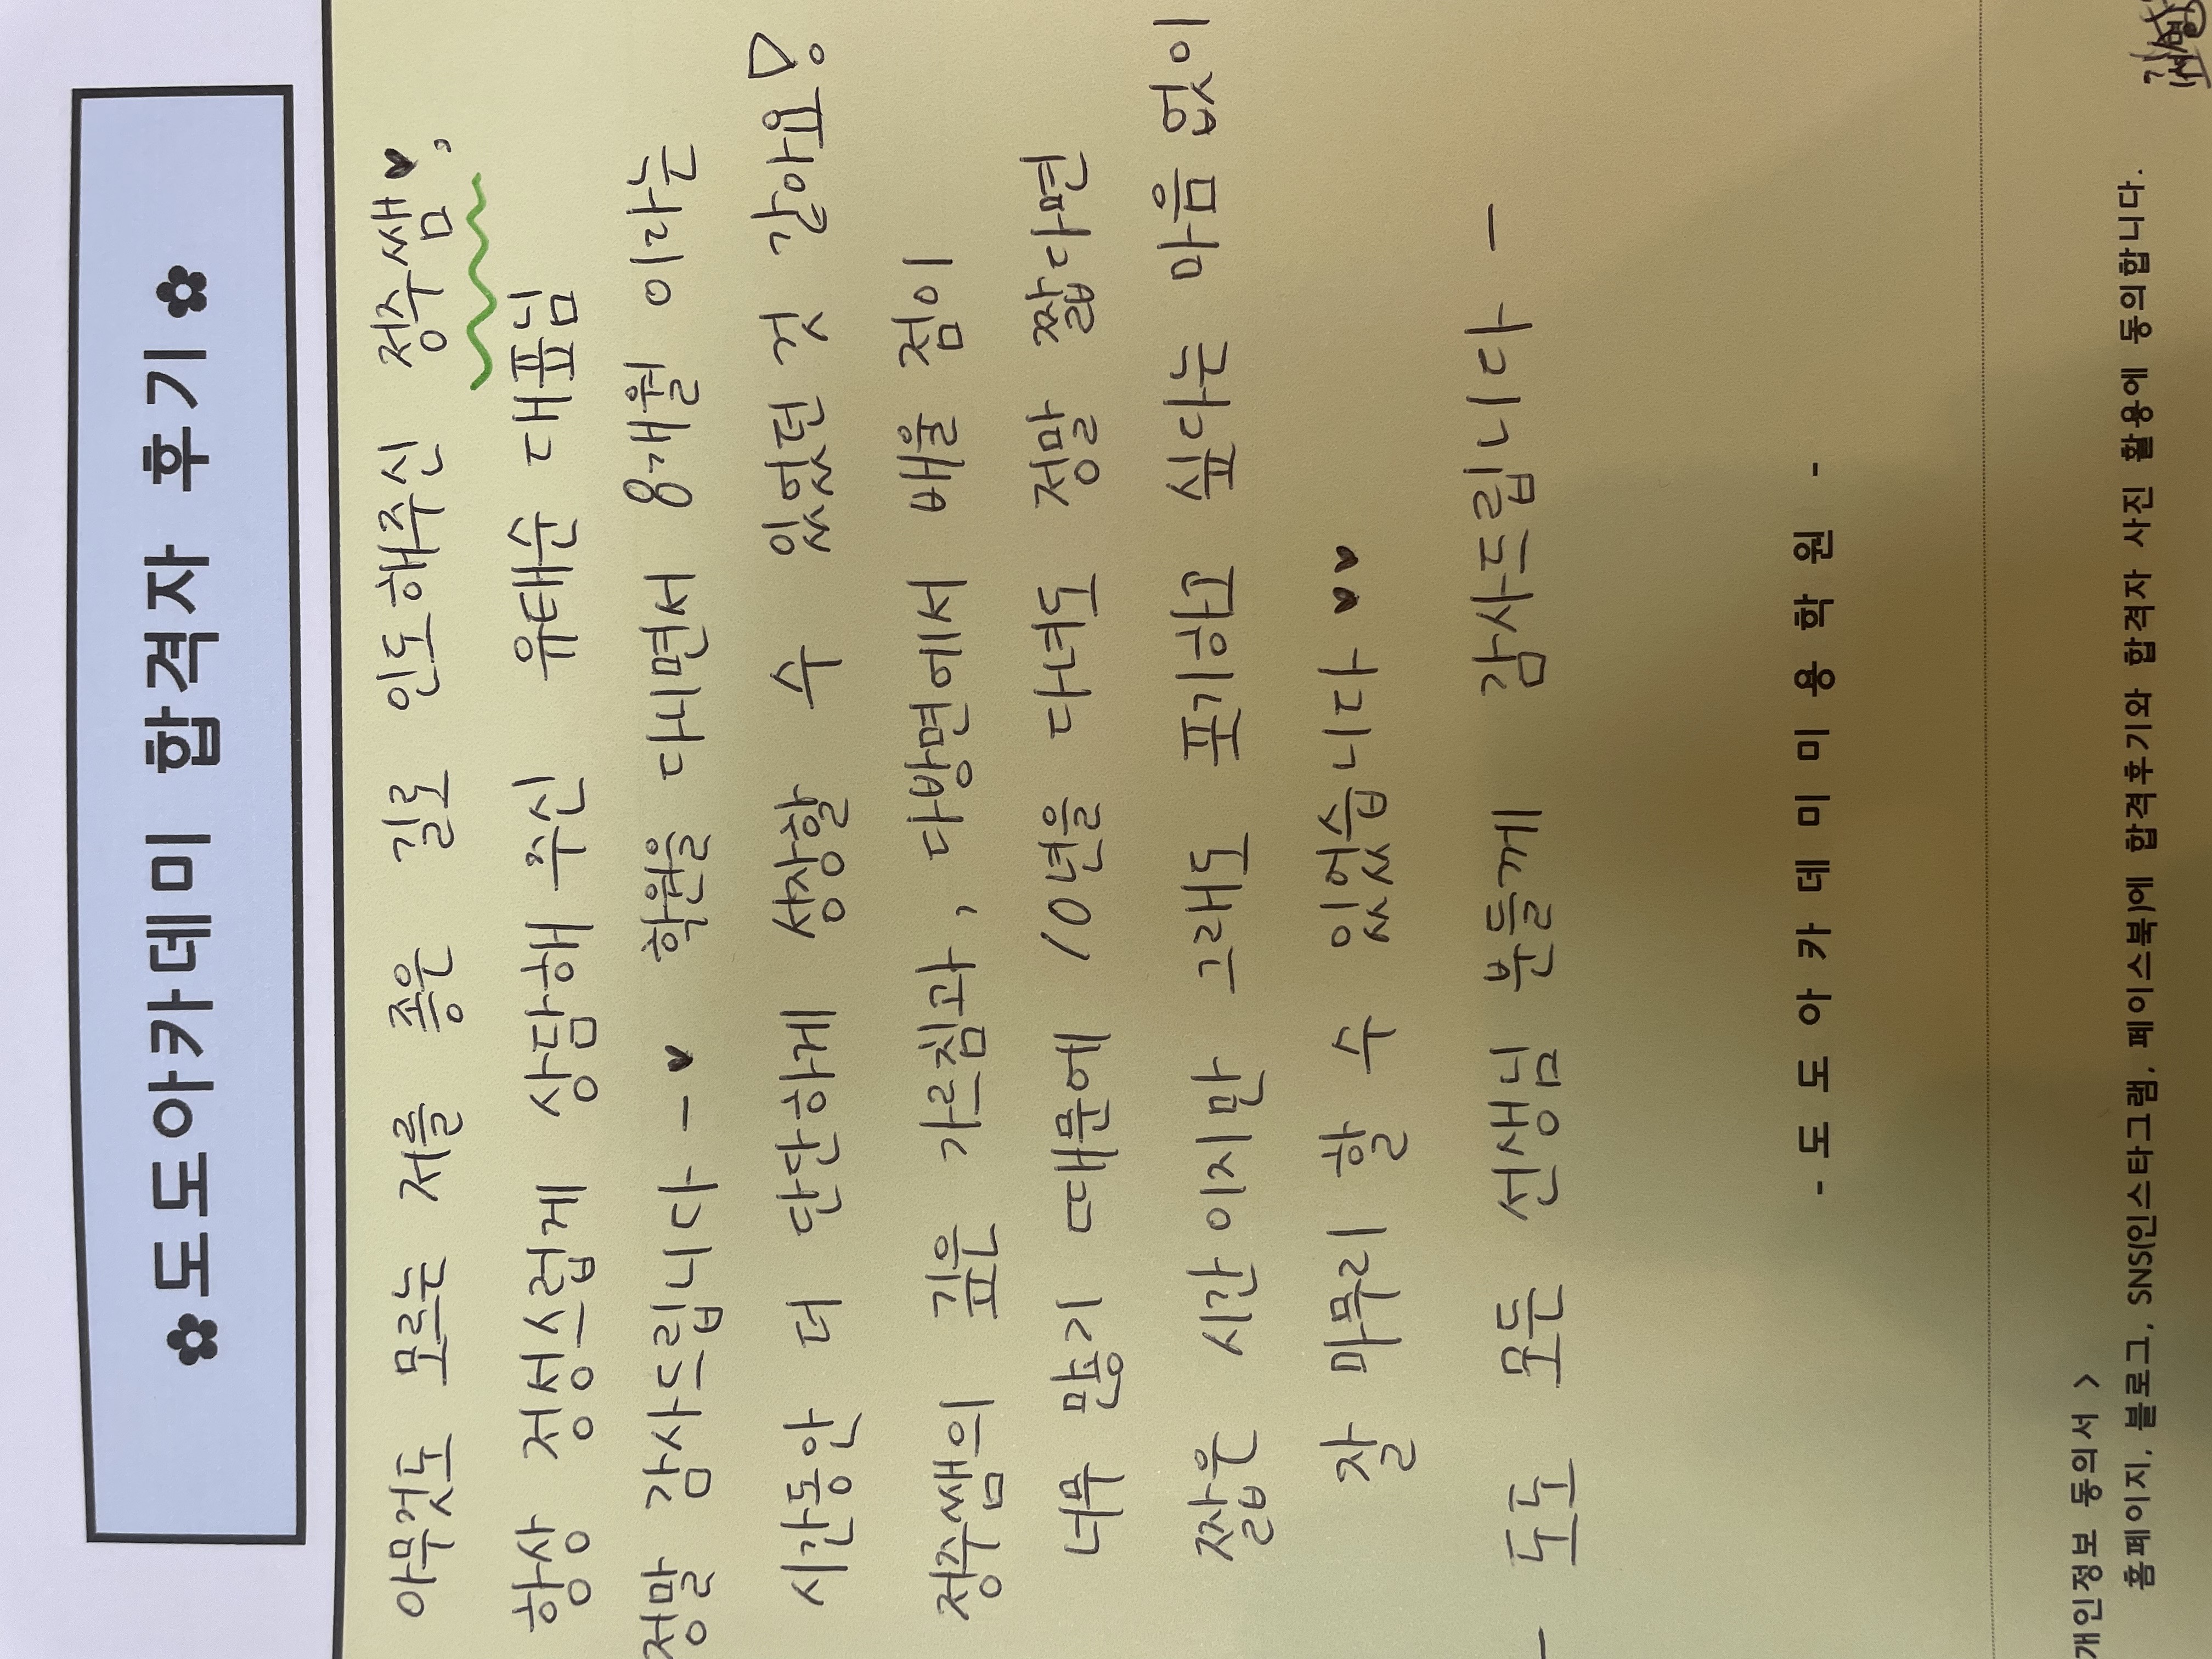 ✿도도아카데미 합격자 후기✿
아무것도 모르는 저를 좋은 길로 인도해주신 정주쌤♥,
항상 정성스럽게 상담해 주신 유태순 대표님
정말 감사드립니다 - ♥ 학원을 다니면서 8개월 이라는
시간동안 더 단단하게 성장할 수 있었던 것 같아요♡
정주쌤의 깊은 가르침과, 다방면에서 배울 점이
너무 많기 때문에 10년을 다녀도 정말 짧다면
짧은 시간이지만 그래도 포기하고 싶다는 마음 없이
잘 마무리 할 수 있었습니다 ♥♥
- 도도 모든 선생님 분들께 감사드립니다 -
- 도 도 아 카 데 미 미 용 학 원 -
개인정보 동의서 >
홈페이지, 블로그, SNS(인스타그램, 페이스북)에 합격후기와 합격자 사진 활용에 동의합니다.